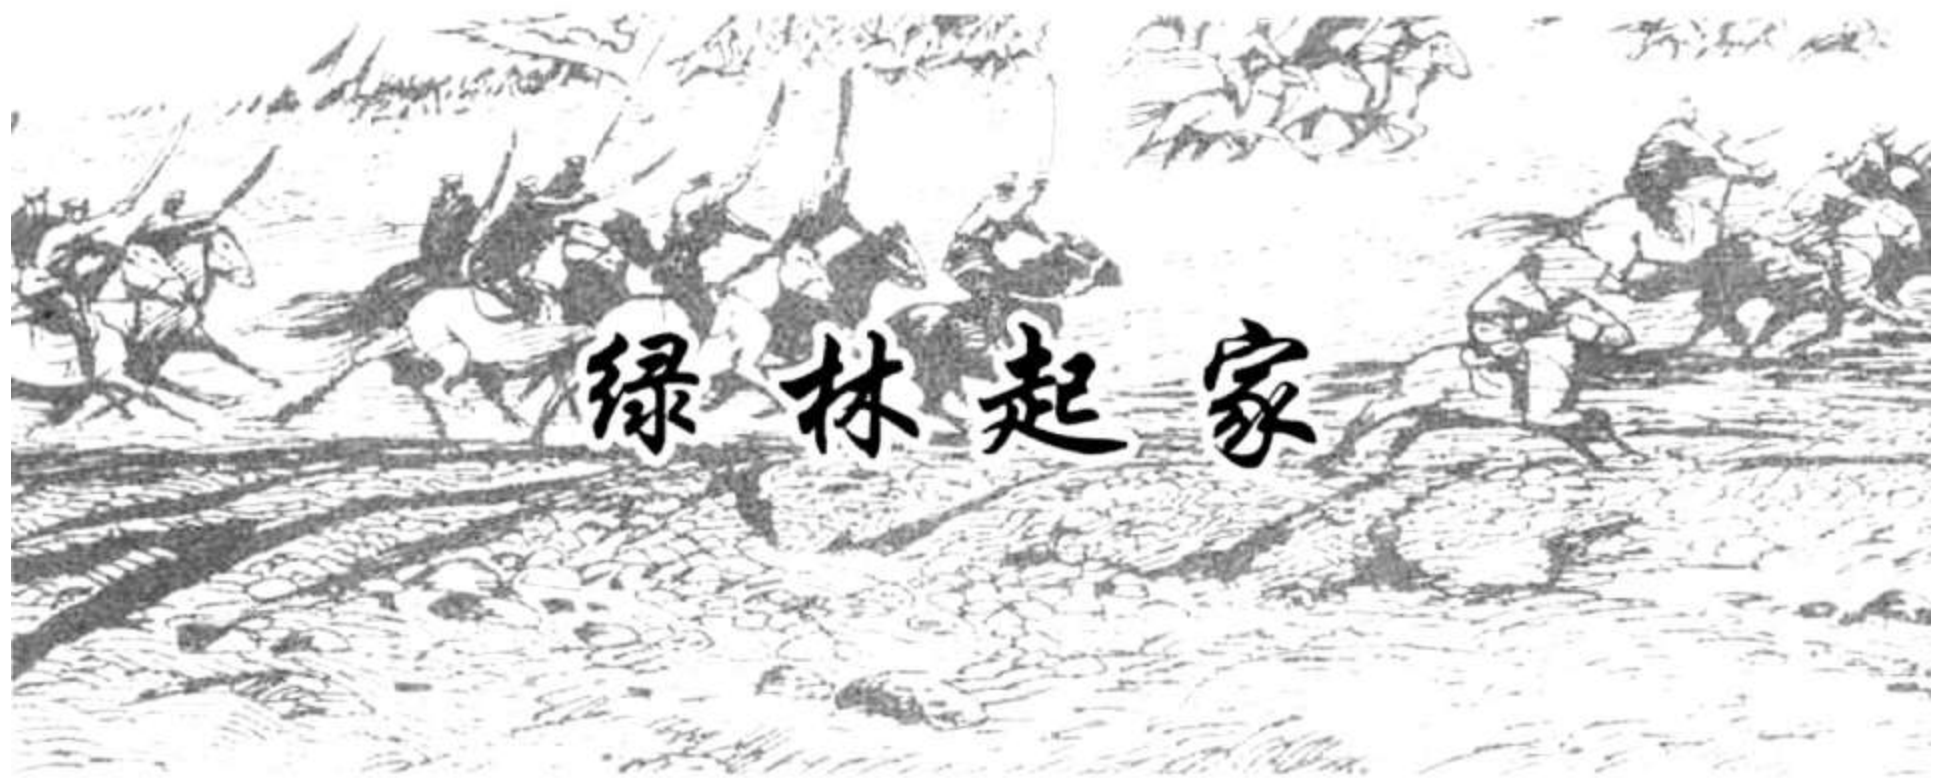 绿林起家